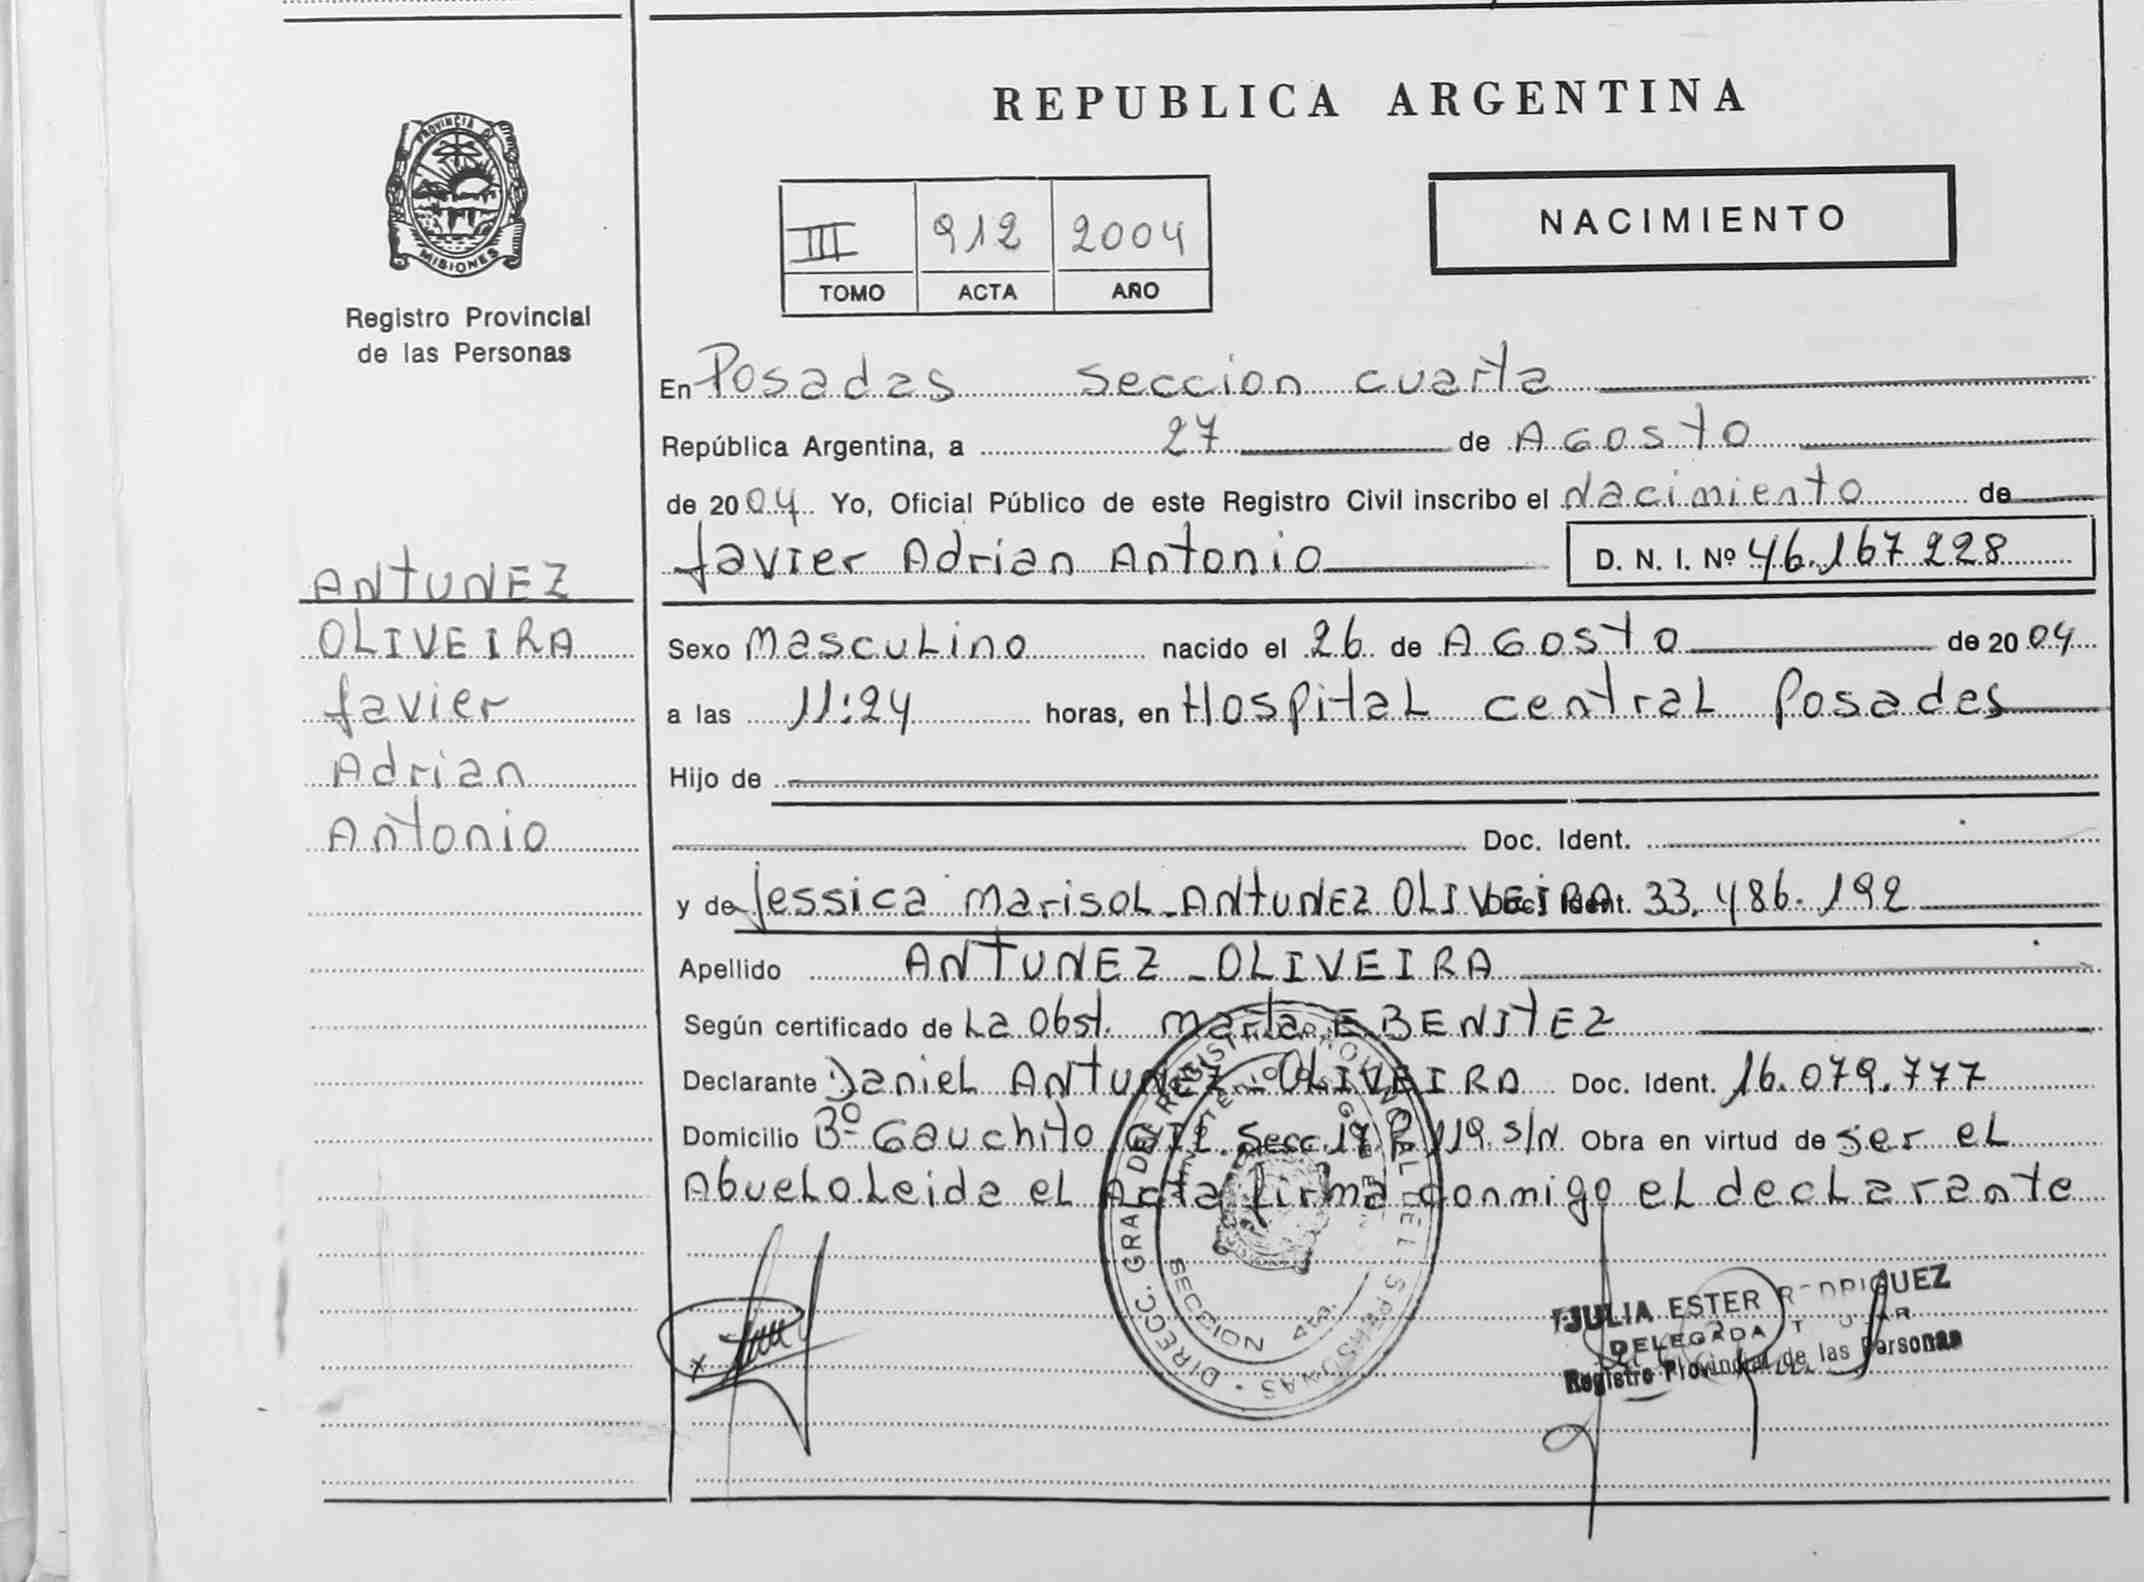 REPUBLICA ARGENTINA
PROVINCIA DE
MISIONES
Registro Provincial
de las Personas
NACIMIENTO
III 912 2004
TOMO ACTA AÑO
En Posadas Seccion cuarta
República Argentina, a 27 de AGosto
de 2004 Yo, Oficial Público de este Registro Civil inscribo el Nacimiento de
Javier Adrian Antonio D. N. I. Nº 46.167.228
ANTUNEZ
OLIVEIRA
Javier
Adrian
Antonio
Sexo MascuLino nacido el 26 de AGosto de 2004
a las 11:24 horas, en HospitaL centraL Posadas
Hijo de
Doc. Ident.
y de Jessica MarisoL ANTUNEZ OLIVEIRA Doc. Ident. 33.486.192
Apellido ANTUNEZ - OLIVEIRA
Según certificado de La Obst. Marta E BENITEZ
Declarante DanieL ANTUNEZ - OLIVEIRA Doc. Ident. 16.079.777
Domicilio Bº Gauchito GIL Secc 17 P 119 S/N Obra en virtud de ser eL
AbueLo Leida eL Acta firma conmigo eL decLarante
DIRECC. GRAL DEL REGISTRO PROVINCIAL DE LAS PERSONAS
SECCION 4ta.
JULIA ESTER RODRIGUEZ
DELEGADA TITULAR
Registro Provincial de las Personas